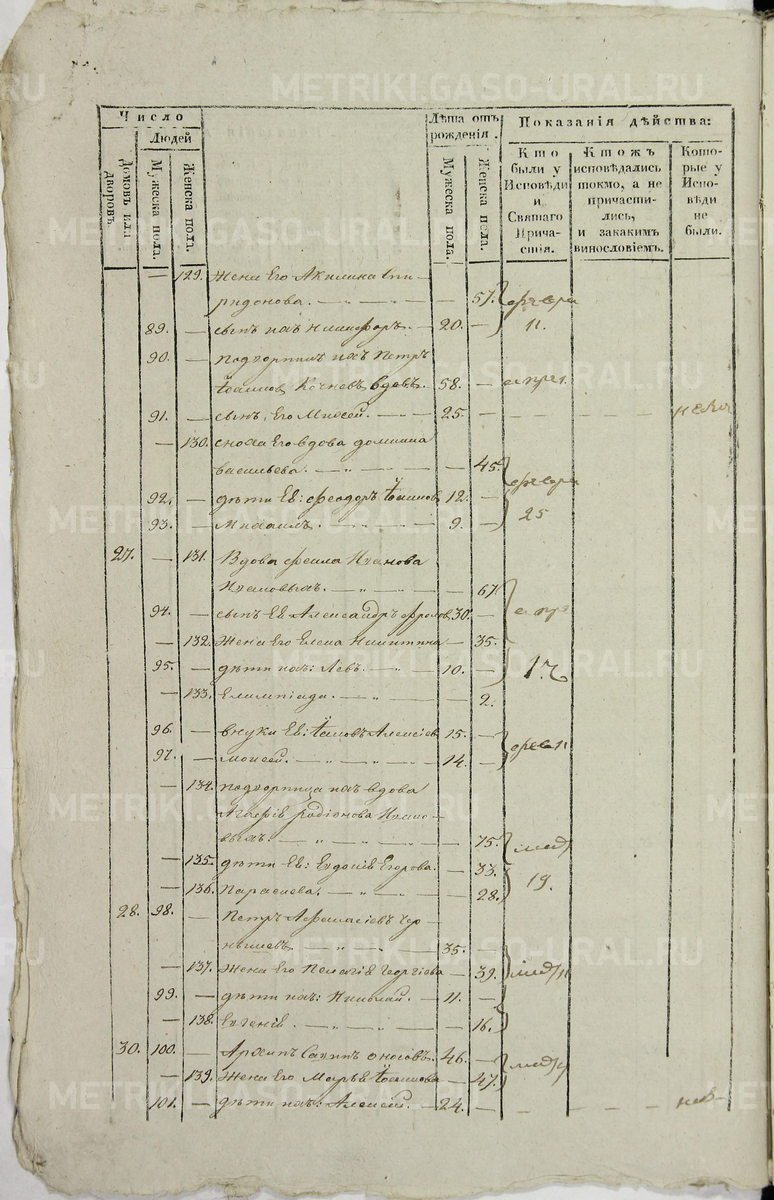 METRIKI.GASO-URAL.RU
Число
Людей
Домовъ или дворовъ.
Мужеска пола.
Женска пола.
Лѣта отъ рожденія.
Мужеска пола.
Женска пола.
Показанія дѣйства:
Кто были у Исповѣди и Святаго Причастія.
Ктожъ исповѣдались токмо, а не причастились, и закакимъ винословіемъ.
Которые у Исповѣди не были.
— 129. Жена Его Акилина Спи-
ридонова. — 57. февра
89. — сынъ ихъ Никифоръ. — 20. — 11.
90. — подворникъ ихъ Петръ
Іоанновъ Кочневъ вдовъ. 58. —
91. — сынъ Его Моисей. — 25. —
— 130. сноха Его вдова домнина
васильева. — 45. февра
92. — дѣти Ея: Феодоръ Іоанновъ 12. — 25
93. — Михаилъ. — 9. —
27. — 131. Вдова Иванова
— 67.
94. — сынъ Ея Александръ Фроловъ 30. —
— 132. Жена Его Елена Никитина — 35.
95. — дѣти ихъ: Левъ. — 10. —
— 133. Елимпіада. — 2.
96. — внуки Ея: Іаковъ Алексіевъ 15. —
97. — моисей. — 14. —
— 134. подворница ихъ вдова
Агафія родіонова
— 75.
— 135. дѣти Ея: Евдокія Егорова. — 33. 19.
— 136. Параскева. — 28.
28. 98. — Петръ Афанасіевъ Чер-
нышевъ — 35. —
— 137. Жена Его Пелагія Георгіева — 39.
99. — дѣти ихъ: Николай. — 11. —
— 138. Евгенія. — 16.
30. 100. — Архипъ Саввинъ оносовъ. 46. —
— 139. Жена Его Марья Іоаннова — 47.
101. — дѣти ихъ: Алексей. — 24. —